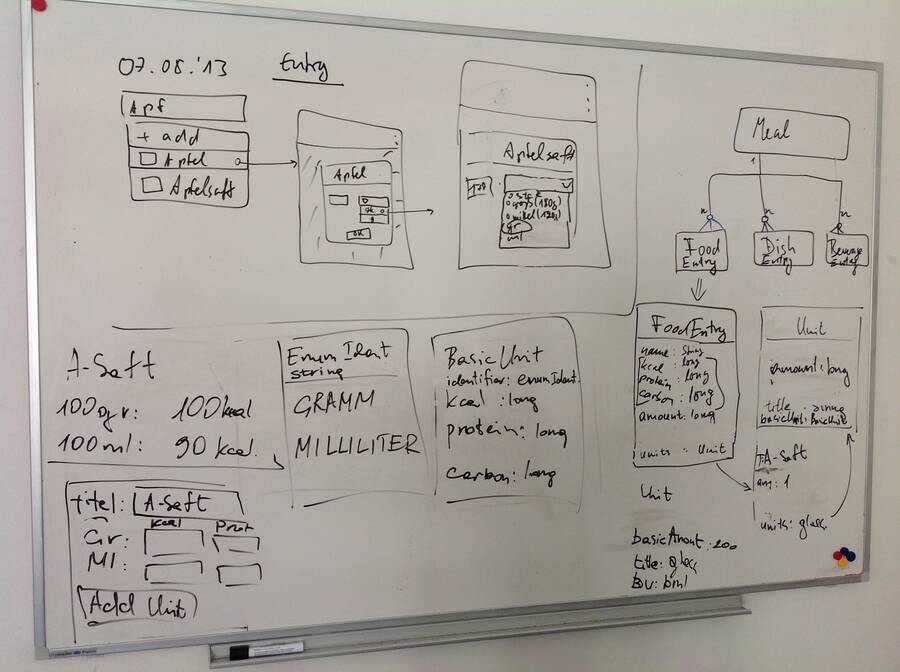 07.08.'13
Entry
Apf
+ add
Apfel
Apfelsaft
Apfel
OK
Apfelsaft
120
gr
ml
Meal
1
n
n
n
Food
Entry
Dish
Entry
Beverage
Entry
A-Saft
100gr: 100kcal
100ml: 90 kcal
Enum Ident
string
GRAMM
MILLILITER
Basic Unit
identifier: enumIdent
kcal : long
protein: long
carbon: long
FoodEntry
name : String
kcal : long
protein : long
carbon : long
amount: long
units : Unit
Unit
amount: long
title : string
T: A-Saft
am: 1
units: glass
Titel: A-Saft
kcal Prot
Gr:
Ml:
Add Unit
Unit
title: glass
BU: bml